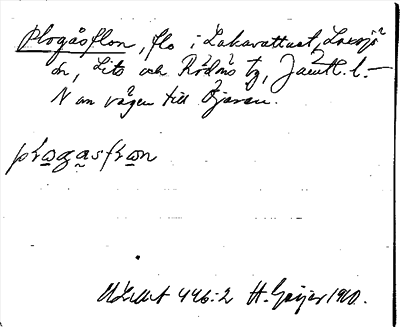 Plogåsflon, flo i Lakavattnet, Laxsjö
ån, Lits och Rödöns tg, Jämtl. l. —
N om vägen till Öjaren.
plogasfron
ULMA 446:2 H. Geijer 1910.